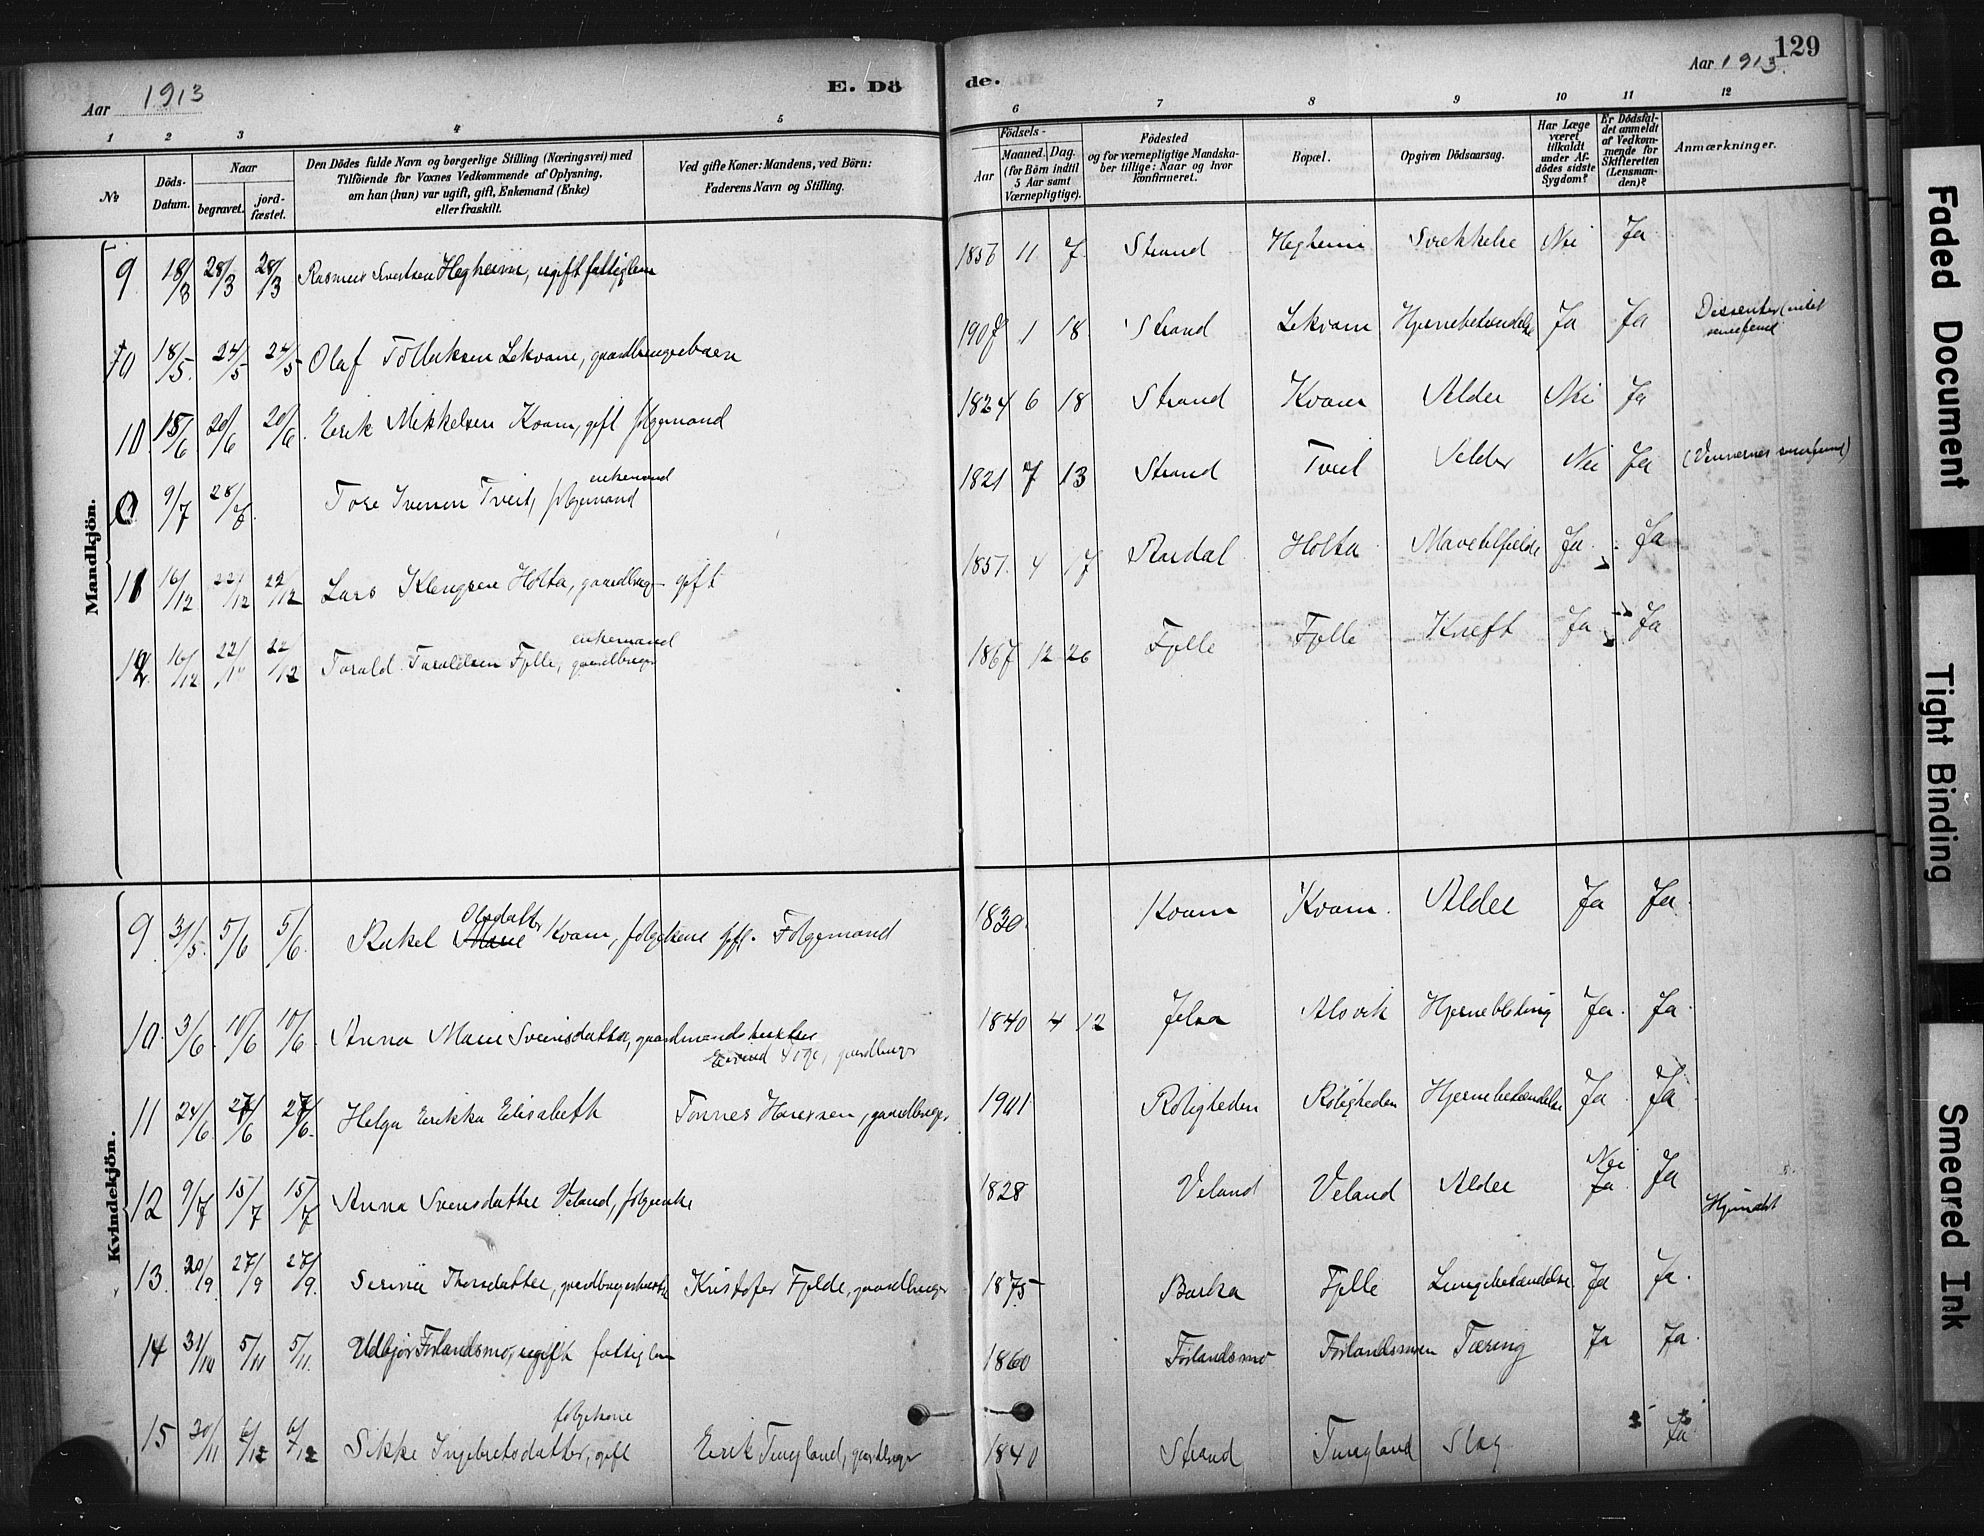 Aar 1913
E. Dö
de.
Aar 1913.
129
1 2 3 4 5 6 7 8 9 10 11 12
No
Döds-
Datum.
Naar
begravet.
jord-
fæstet.
Den Dödes fulde Navn og borgerlige Stilling (Næringsvei) med
Tilföiende for Voxnes Vedkommende af Oplysning,
om han (hun) var ugift, gift, Enkemand (Enke)
eller fraskilt.
Ved gifte Koner: Mandens, ved Börn:
Faderens Navn og Stilling.
Födsels-
Aar
Maaned. Dag.
(for Börn indtil
5 Aar samt
Værnepligtige).
Födested
og for værnepligtige Mandska-
ber tillige: Naar og hvor
konfirmeret.
Bopæl.
Opgiven Dödsaarsag.
Har Læge
været
tilkaldt
under Af-
dödes sidste
Sygdom?
Er Dödsfal-
det anmeldt
af Vedkom-
mende for
Skifteretten
(Lensman-
den)?
Anmærkninger.
Mandkjön.
9 18/3 28/3 28/3 Rasmus Hegheim, ugift fattiglem 1856 11 7 Strand Hegheim Svækkelse Nei Ja
10 18/5 24/5 24/5 Olaf Tollaksen Lekvam, 1907 1 18 Strand Lekvam Hjernebetændelse Ja Ja Dissenter
10 15/6 20/6 20/6 Erik Mikkelsen Kvam, gift følgemand 1824 6 18 Strand Kvam Alder Nei Ja
enkemand
9/7 Tore Iversen Tveit, følgemand 1821 7 13 Strand Tveit Alder Nei Ja (Vennernes samfund)
11 16/12 22/12 22/12 Lars Klengsen Holta, gaardbrug- gift 1851 4 17 Aardal Holta Ja Ja
enkemand
12 16/12 22/12 Torald Toraldsen Fjelle, gaardbruger 1867 12 26 Fjelle Fjelle Kræft Ja Ja
Kvindekjön.
Olsdatter
9 31/5 5/6 5/6 Rakel Marie Kvam, følgekone gift. Følgemand 1830 Kvam Kvam. Alder Ja Ja
10 3/6 10/6 10/6 Anna Marie Sveinsdatter, gaardmandshustru 1840 4 12 Jelsa Alsvik Hjerneblødning Ja Ja
gaardbruger
11 24/6 27/6 27/6 Helga Erikka Elisabeth Tønnes Hansen, gaardbruger 1901 Roligheden Roligheden Hjernebetændelse Ja Ja
Nei
12 9/7 15/7 15/7 Anna Svensdatter Veland, følgeenke 1828 Veland Veland Alder Ja Ja
13 20/9 27/9 27/9 Serina Thorsdatter, gaardbrugerhustru Kristofer Fjelde, gaardbruger 1875 Barka Fjelle Lungebetændelse Ja Ja
14 31/10 5/11 5/11 Udbjør Førlandsmo, ugift fattiglem 1860 Førlandsmo Førlandsmoen Tæring Ja Ja
følgekone
15 30/11 6/12 6/12 Sikke Ingebretsdatter, gift Eirik Tungland, gaardbruger 1840 Strand Tungland Slag Ja
Faded Document
Tight Binding
Smeared Ink